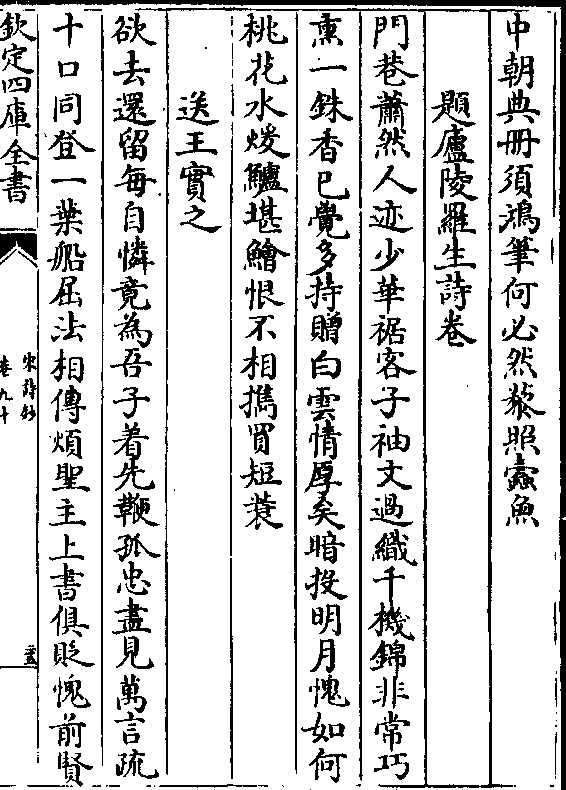 中朝典冊須鴻筆何必然藜照蠧魚
題廬陵羅生詩卷
門巷蕭然人迹少華裾客子袖文過織千機錦非常巧
熏一銖香已覺多持贈白雲情厚矣暗投明月愧如何
桃花水煖鱸堪鱠恨不相攜買短蓑
送王實之
欲去還留每自憐竟為吾子着先鞭孤忠盡見萬言疏
十口同登一葉船屈法相傳煩聖主上書俱貶愧前賢
欽定四庫全書
宋詩鈔
卷九十